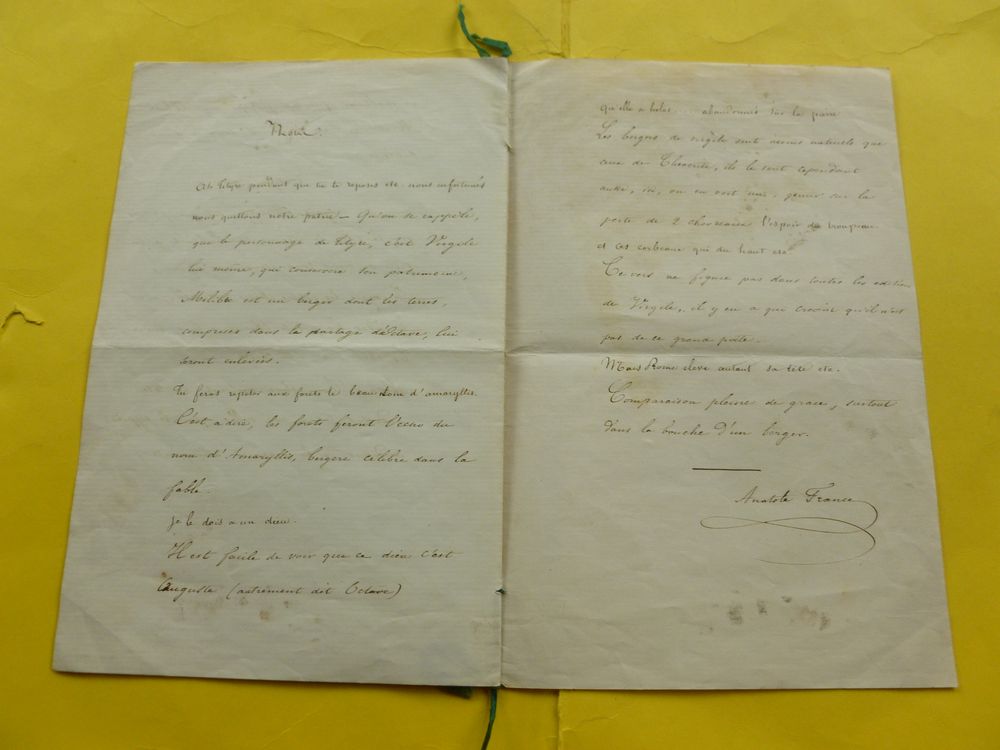 Notes.
Ah Tityre pendant que tu te reposes etc. nous infortunés
nous quittons notre patrie — Qu'on se rappèle,
que le personnage de Tityre, c'est Virgile
lui même, qui conservera son patrimoine,
Mélibée est un berger dont les terres,
comprises dans le partage d'Octave, lui
seront enlevées.
Tu feras repeter aux forets le beau nom d'amaryllis.
C'est a dire, les forets feront l'echo du
nom d'Amaryllis, bergere célèbre dans la
fable.
Je le dois a un dieu.
Il est facile de voir que ce dieu c'est
Auguste (autrement dit Octave)
qu'elle a helas... abandonnés sur la pierre
Les bergers de virgile sont moins naturels que
ceux de Theocrite, ils le sont cependant
ici, on en voit un, gémir sur la
perte de 2 chevreaux l'espoir du troupeau
et ces corbeaux qui du haut etc.
Ce vers ne figure pas dans toutes les editions
de Virgile, il y en a qui croient qu'il n'est
pas de ce grand poète.
Mais Rome eleve autant sa tête etc.
Comparaison pleine de grace, surtout
dans la bouche d'un berger.
Anatole France